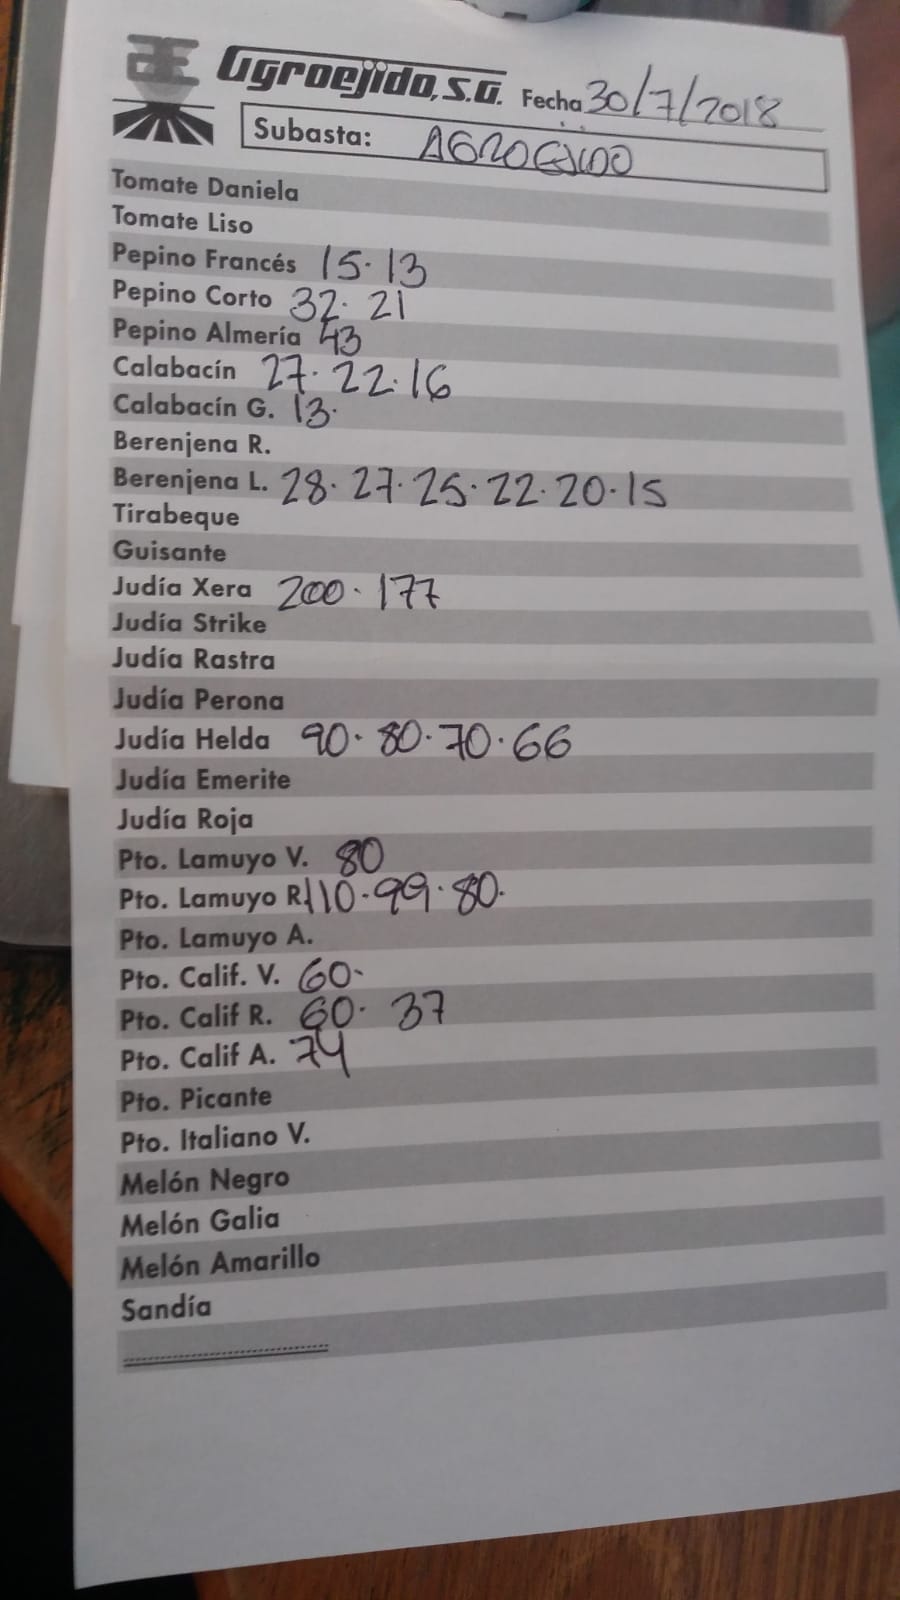 Agroejido, S.A. Fecha 30/7/2018
Subasta: AGROEJIDO
Tomate Daniela
Tomate Liso
Pepino Francés 15. 13
Pepino Corto 32. 21
Pepino Almería 43
Calabacín 27. 22. 16
Calabacín G. 13.
Berenjena R.
Berenjena L. 28. 27. 25. 22. 20. 15
Tirabeque
Guisante
Judía Xera 200. 177
Judía Strike
Judía Rastra
Judía Perona
Judía Helda 90. 80. 70. 66
Judía Emerite
Judía Roja
Pto. Lamuyo V. 80
Pto. Lamuyo R. 110. 99. 80.
Pto. Lamuyo A.
Pto. Calif. V. 60.
Pto. Calif R. 60. 37
Pto. Calif A. 74
Pto. Picante
Pto. Italiano V.
Melón Negro
Melón Galia
Melón Amarillo
Sandía